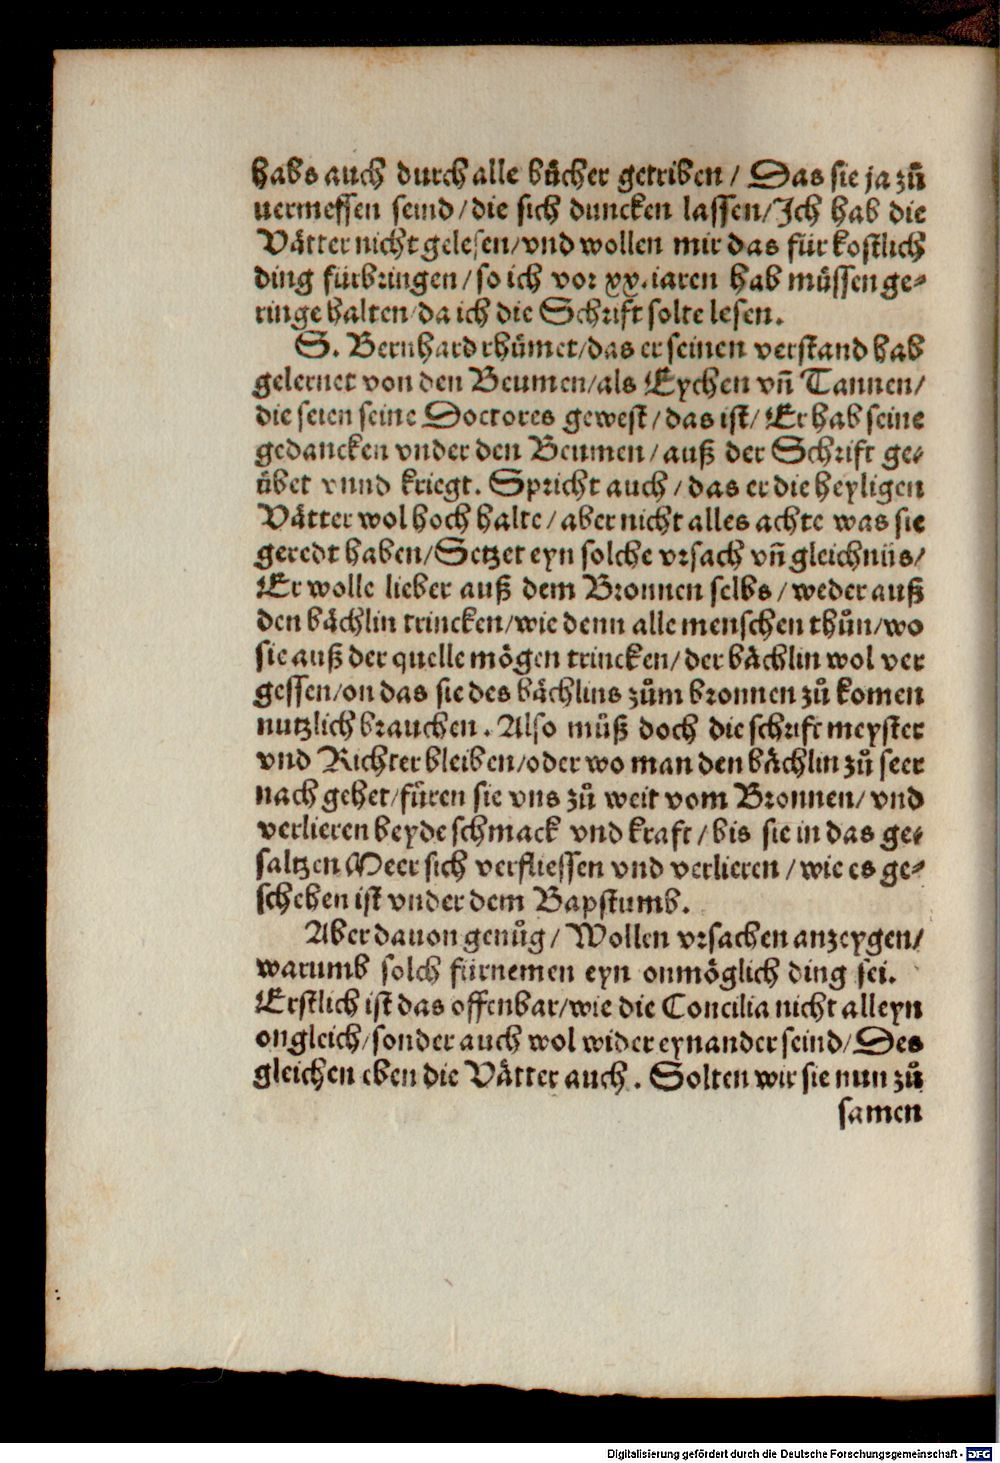 habs auch durch alle bücher getriben / Das sie ja zů
uermessen seind / die sich duncken lassen / Ich hab die
Vätter nicht gelesen / vnd wollen mir das für kostlich
ding fürbringen / so ich vor xx. iaren hab müssen ge⸗
ringe halten / da ich die Schrift solte lesen.
S. Bernhard rhümet / das er seinen verstand hab
gelernet von den Beumen / als Eychen vñ Tannen /
die seien seine Doctores gewest / das ist / Er hab seine
gedancken vnder den Beumen / auß der Schrift ge⸗
übet vnnd kriegt. Spricht auch / das er die heyligen
Vätter wol hoch halte / aber nicht alles achte was sie
geredt haben / Setzet eyn solche vrsach vñ gleichnüs /
Er wolle lieber auß dem Bronnen selbs / weder auß
den bächlin trincken / wie denn alle menschen thůn / wo
sie auß der quelle mögen trincken / der bächlin wol ver
gessen / on das sie des bächlins zům bronnen zů komen
nutzlich brauchen. Also můß doch die schrift meyster
vnd Richter bleiben / oder wo man den bächlin zů seer
nach gehet / füren sie vns zů weit vom Bronnen / vnd
verlieren beyde schmack vnd kraft / bis sie in das ge⸗
saltzen Meer sich verfliessen vnd verlieren / wie es ge⸗
schehen ist vnder dem Bapstumb.
Aber dauon genůg / Wollen vrsachen anzeygen /
warumb solch fürnemen eyn onmöglich ding sei.
Erstlich ist das offenbar / wie die Concilia nicht alleyn
ongleich / sonder auch wol wider eynander seind / Des
gleichen eben die Vätter auch. Solten wir sie nun zů
samen
Digitalisierung gefördert durch die Deutsche Forschungsgemeinschaft - DFG